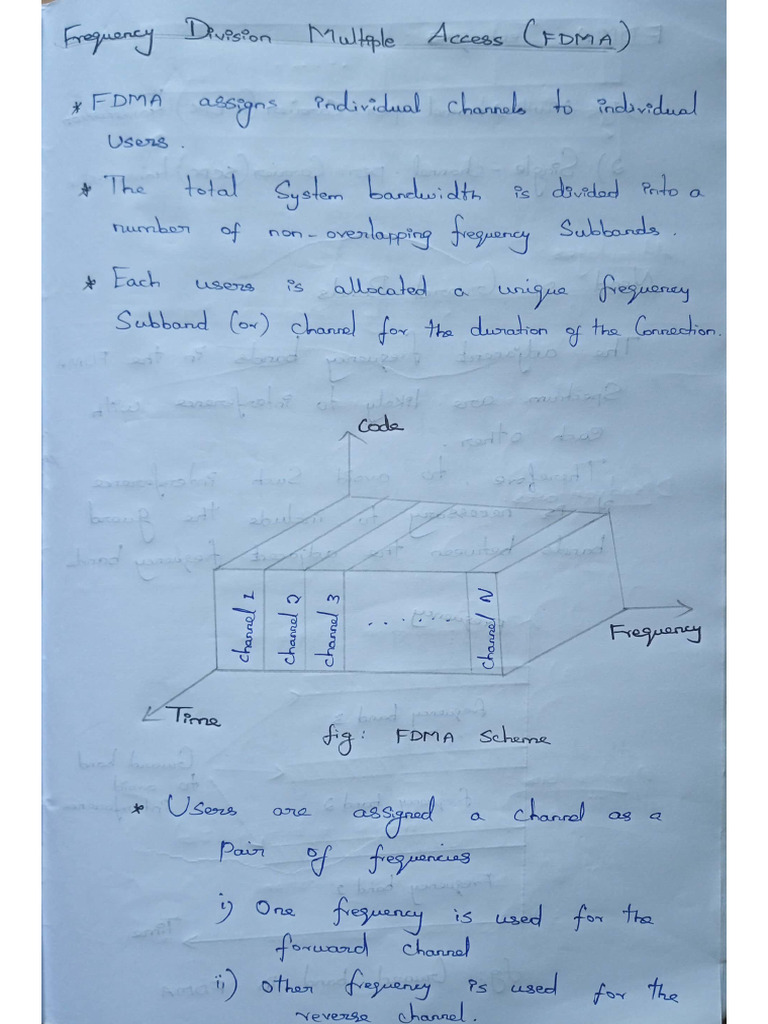 Frequency Division Multiple Access (FDMA)
* FDMA assigns individual channels to individual
users.
* The total System bandwidth is divided into a
number of non-overlapping frequency Subbands.
* Each users is allocated a unique frequency
Subband (or) channel for the duration of the Connection.
Code
channel 1
channel 2
channel 3
. . . . . . .
channel N
Frequency
Time
fig: FDMA Scheme
* Users are assigned a channel as a
pair of frequencies
i) One frequency is used for the
forward channel
ii) other frequency is used for the
reverse channel.